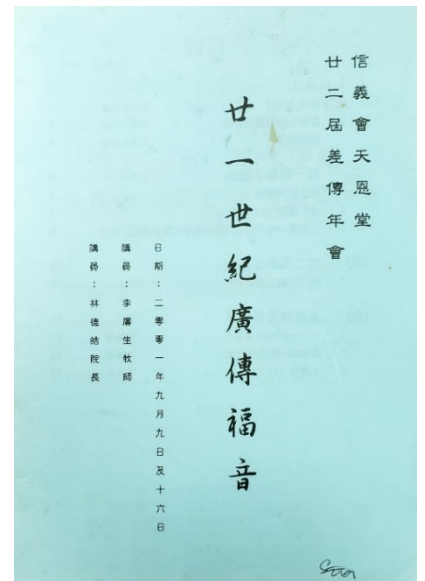 信義會天恩堂
廿二屆差傳年會
廿一世紀廣傳福音
日期：二零零一年九月九日及十六日
講員：李廣生牧師
講員：林德皓院長